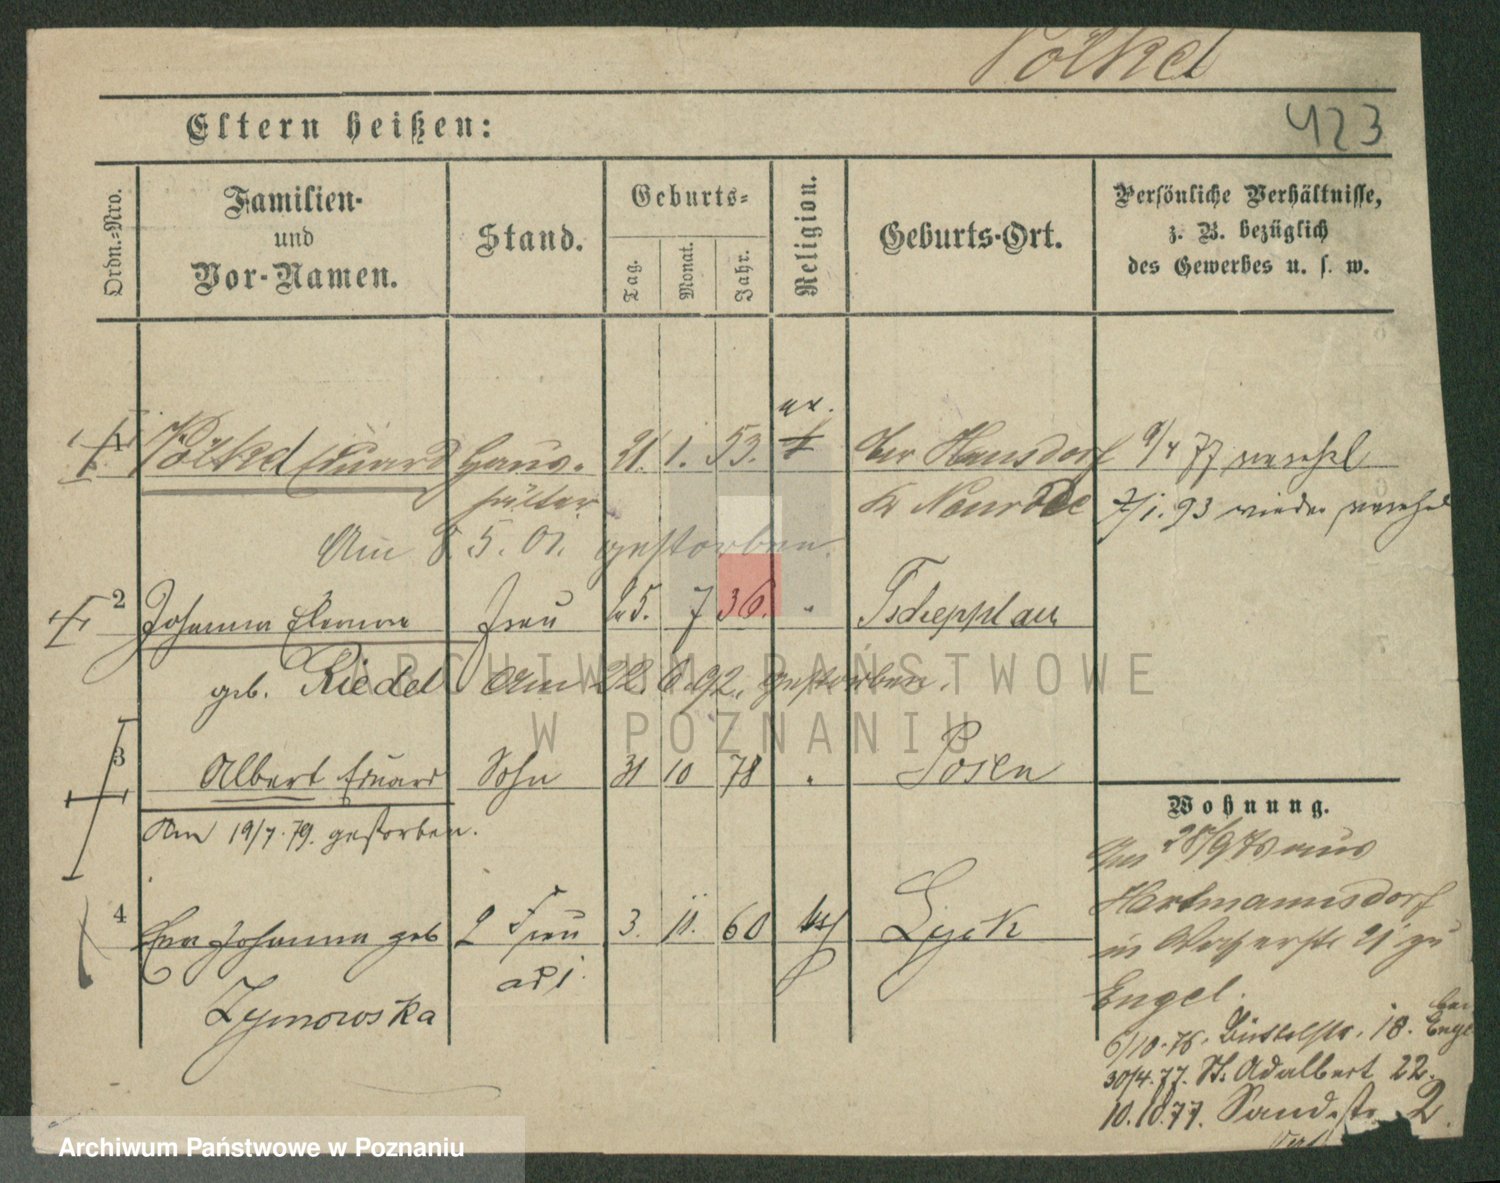 Völkel
423
Eltern heißen:
Ordn.-Nro.
Familien-
und
Vor-Namen.
Stand.
Geburts-
Tag.
Monat.
Jahr.
Religion.
Geburts-Ort.
Persönliche Verhältnisse,
z. B. bezüglich
des Gewerbes u. s. w.
1 Völkel Eduard Haus- 21. 1. 53. Hausdorf 9/4 77 verehel
hälter Kr Neurode 7/1. 93 wieder verehel
Am 8. 5. 01. gestorben.
2 Johanna Frau 25. 7 36. " Tschepplau
geb. Riedel Am 22. 6. 92. gestorben.
3 Albert Eduard Sohn 31 10 78 " Posen
Am 19/7. 79. gestorben.
4 Johanna geb 2 Frau 3. 11. 60 Lyck
Zymowska
Wohnung.
28/9 76 aus
Hartmannsdorf
in 21 zu
Engel.
6/10. 76. 18. bei Engel
30/4. 77. St. Adalbert 22.
10.10.77. Sandstr. 2.
ARCHIWUM PAŃSTWOWE
W POZNANIU
Archiwum Państwowe w Poznaniu